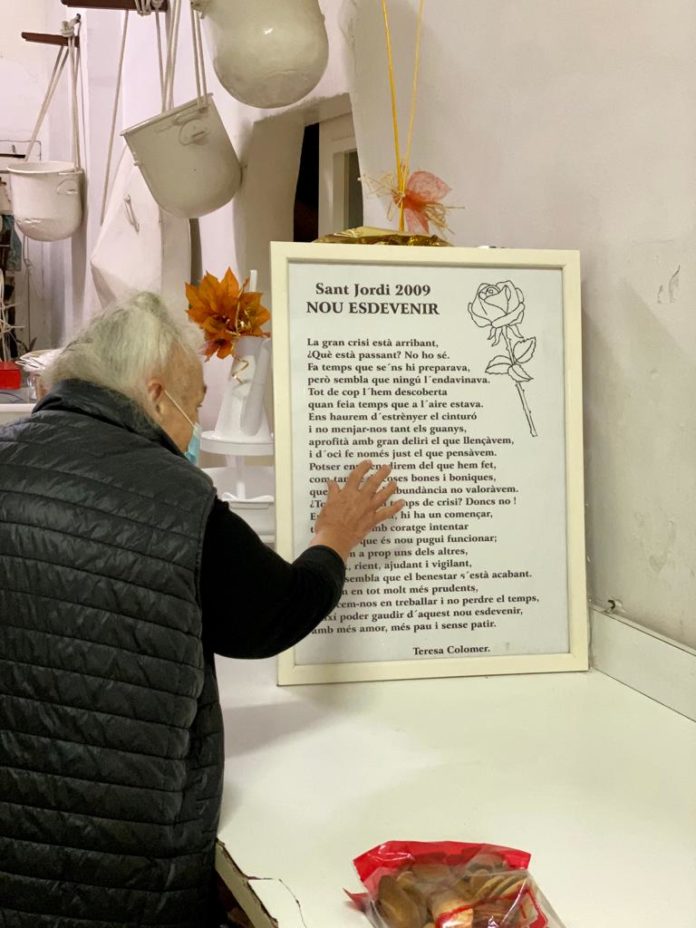 Sant Jordi 2009
NOU ESDEVENIR
La gran crisi està arribant,
¿Què està passant? No ho sé.
Fa temps que se´ns hi preparava,
però sembla que ningú l´endavinava.
Tot de cop l´hem descoberta
quan feia temps que a l´aire estava.
Ens haurem d´estrènyer el cinturó
i no menjar-nos tant els guanys,
aprofità amb gran deliri el que llençàvem,
i d´oci fe només just el que pensàvem.
Potser en direm del que hem fet,
coses bones i boniques,
abundància no valoràvem.
de crisi? Doncs no !
hi ha un començar,
amb coratge intentar
que és nou pugui funcionar;
a prop uns dels altres,
rient, ajudant i vigilant,
sembla que el benestar s´està acabant.
en tot molt més prudents,
en treballar i no perdre el temps,
poder gaudir d´aquest nou esdevenir,
amb més amor, més pau i sense patir.
Teresa Colomer.